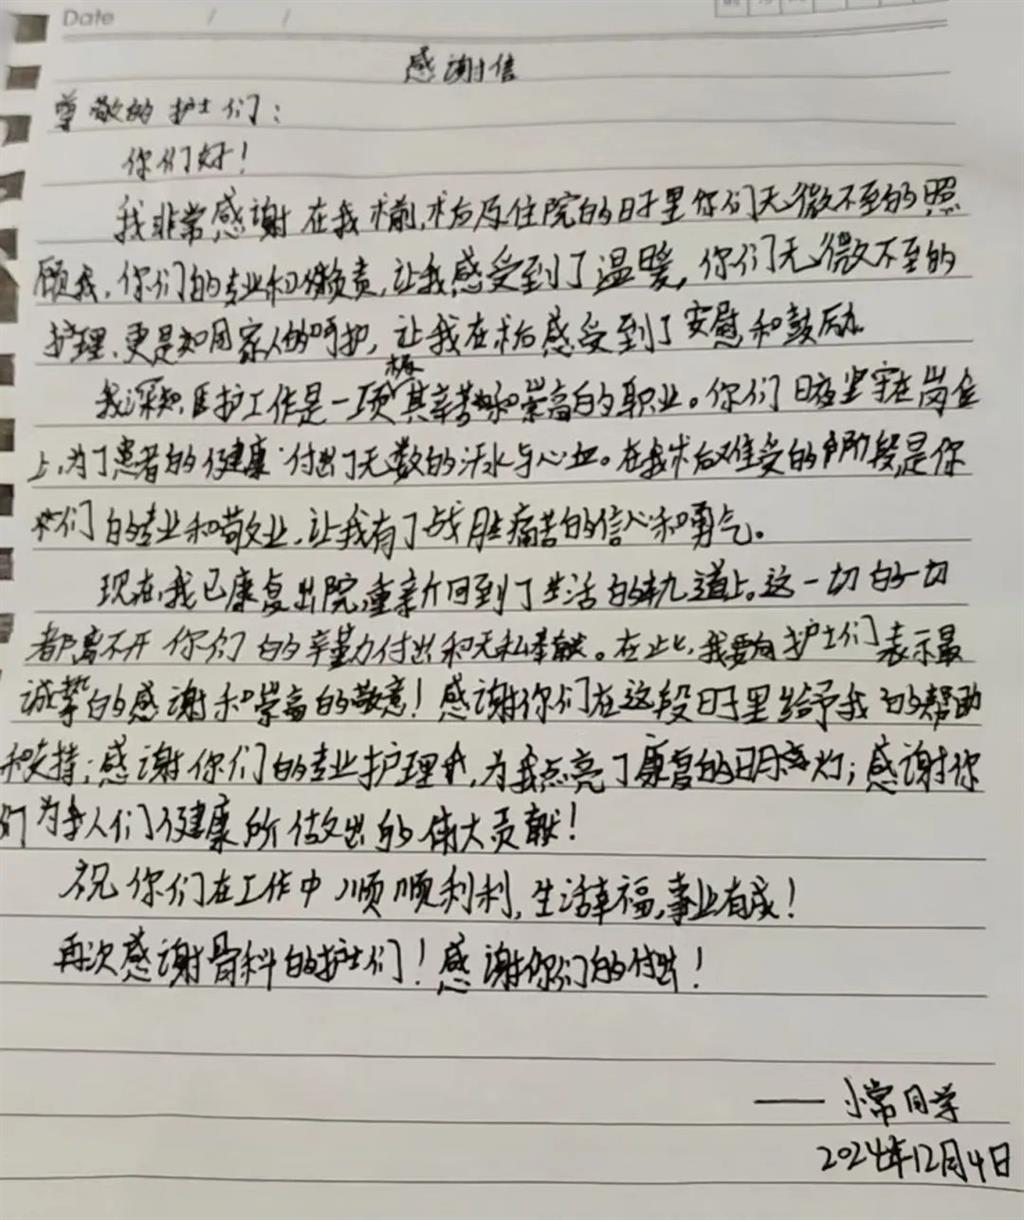 Date / /
感谢信
尊敬的护士们：
你们好！
我非常感谢在我术前，术后及住院的日子里你们无微不至的照
顾我，你们的专业和负责，让我感受到了温暖，你们无微不至的
护理、更是如同家人的呵护，让我在术后感受到了安慰和鼓励。
极
我深知，医护工作是一项其辛苦和崇高的职业。你们日夜坚守在岗位
上，为了患者的健康付出了无数的汗水与心血。在我术后难受的阶段，是你
们的专业和敬业，让我有了战胜痛苦的信心和勇气。
现在，我已康复出院，重新回到了生活的轨道上。这一切的一切
都离不开你们的辛勤付出和无私奉献。在此，我要向护士们表示最
诚挚的感谢和崇高的敬意！感谢你们在这段日子里给予我的帮助
和支持；感谢你们的专业护理我，为我点亮了康复的明亮灯；感谢你
们为我人们健康所做出的伟大贡献！
祝你们在工作中顺顺利利，生活幸福，事业有成！
再次感谢骨科的护士们！感谢你们的付出！
——小常同学
2024年12月4日